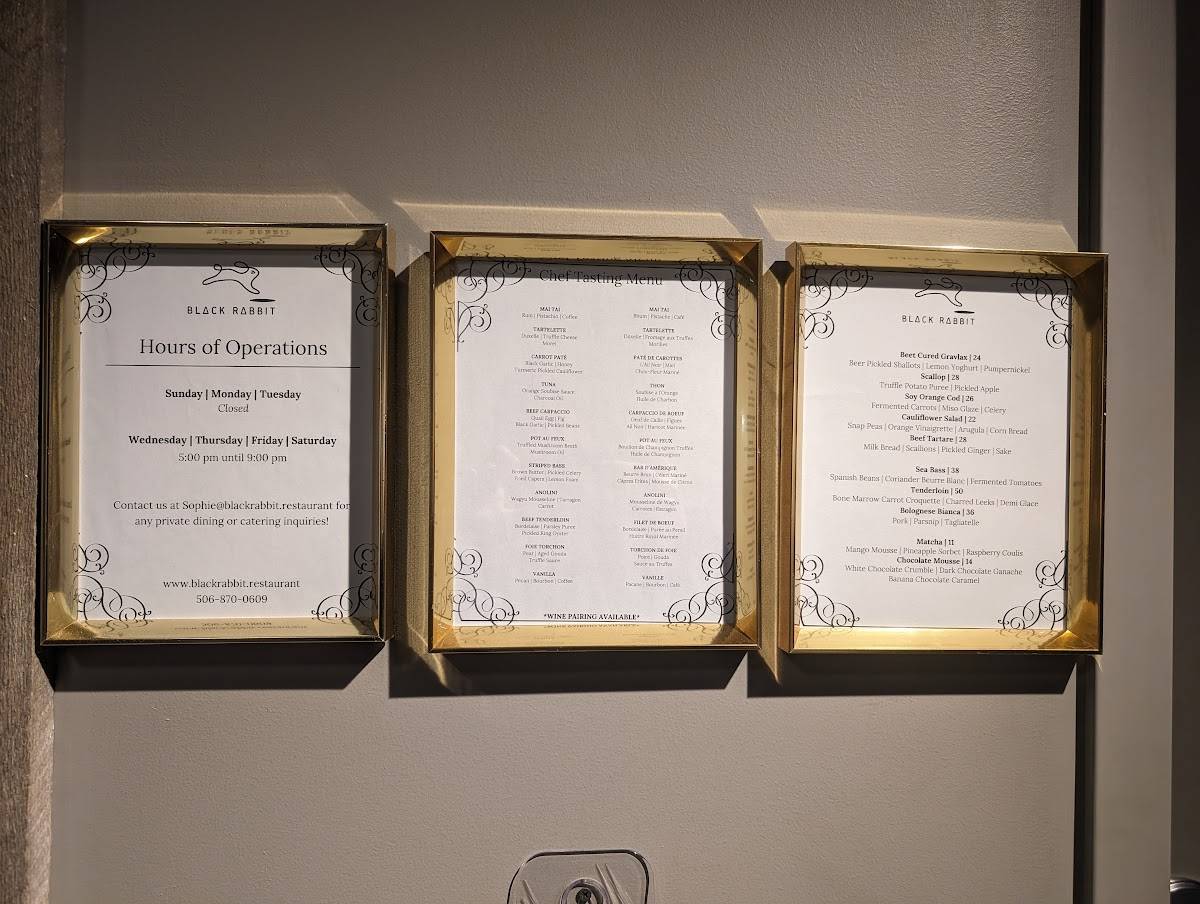 BLACK RABBIT
Hours of Operations
Sunday | Monday | Tuesday
Closed
Wednesday | Thursday | Friday | Saturday
5:00 pm until 9:00 pm
Contact us at Sophie@blackrabbit.restaurant for
any private dining or catering inquiries!
www.blackrabbit.restaurant
506-870-0609
Chef Tasting Menu
MAI TAI
Rum | Pistachio | Coffee
TARTELETTE
Duxelle | Truffle Cheese
Morel
CARROT PATÉ
Black Garlic | Honey
Turmeric Pickled Cauliflower
TUNA
Orange Soubise Sauce
Charcoal Oil
BEEF CARPACCIO
Quail Egg | Fig
Black Garlic | Pickled Beans
POT AU FEUX
Truffled Mushroom Broth
Mushroom Oil
STRIPED BASS
Brown Butter | Pickled Celery
Fried Capers | Lemon Foam
ANOLINI
Wagyu Mousseline | Tarragon
Carrot
BEEF TENDERLOIN
Bordelaise | Parsley Puree
Pickled King Oyster
FOIE TORCHON
Pear | Aged Gouda
Truffle Sauce
VANILLA
Pecan | Bourbon | Coffee
MAI TAI
Rhum | Pistache | Café
TARTELETTE
Duxelle | Fromage aux Truffes
Morilles
PATÉ DE CAROTTES
L'Ail Noir | Miel
Chou-Fleur Mariné
THON
Soubise a l'Orange
Huile de Charbon
CARPACCIO DE BOEUF
Oeuf de Caille | Figues
Ail Noir | Haricot Mariner
POT AU FEUX
Bouillon de Champignon Truffes
Huile de Champignon
BAR D'AMÉRIQUE
Beurre Brun | Céleri Mariné
Câpres Frites | Mousse de Citron
ANOLINI
Mousseline de Wagyu
Carottes | Estragon
FILET DE BOEUF
Bordelaise | Purée au Persil
Huitre Royal Marinée
TORCHON DE FOIE
Poire | Gouda
Sauce au Truffes
VANILLE
Pacane | Bourbon | Café
*WINE PAIRING AVAILABLE*
BLACK RABBIT
Beet Cured Gravlax | 24
Beer Pickled Shallots | Lemon Yoghurt | Pumpernickel
Scallop | 28
Truffle Potato Puree | Pickled Apple
Soy Orange Cod | 26
Fermented Carrots | Miso Glaze | Celery
Cauliflower Salad | 22
Snap Peas | Orange Vinaigrette | Arugula | Corn Bread
Beef Tartare | 28
Milk Bread | Scallions | Pickled Ginger | Sake
Sea Bass | 38
Spanish Beans | Coriander Beurre Blanc | Fermented Tomatoes
Tenderloin | 50
Bone Marrow Carrot Croquette | Charred Leeks | Demi Glace
Bolognese Bianca | 36
Pork | Parsnip | Tagliatelle
Matcha | 11
Mango Mousse | Pineapple Sorbet | Raspberry Coulis
Chocolate Mousse | 14
White Chocolate Crumble | Dark Chocolate Ganache
Banana Chocolate Caramel